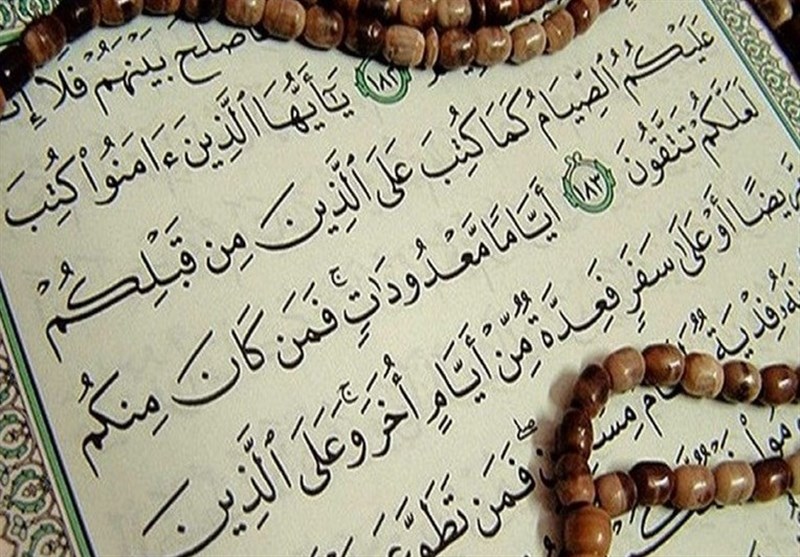 فَأَصْلَحَ بَيْنَهُمْ فَلَا
١٨٢ يَٰٓأَيُّهَا ٱلَّذِينَ ءَامَنُوا۟ كُتِبَ
عَلَيْكُمُ ٱلصِّيَامُ كَمَا كُتِبَ عَلَى ٱلَّذِينَ مِن قَبْلِكُمْ
لَعَلَّكُمْ تَتَّقُونَ ١٨٣ أَيَّامًا مَّعْدُودَٰتٍ ۚ فَمَن كَانَ مِنكُم
مَّرِيضًا أَوْ عَلَىٰ سَفَرٍ فَعِدَّةٌ مِّنْ أَيَّامٍ أُخَرَ ۚ وَعَلَى ٱلَّذِينَ
فِدْيَةٌ فَمَن تَطَوَّعَ